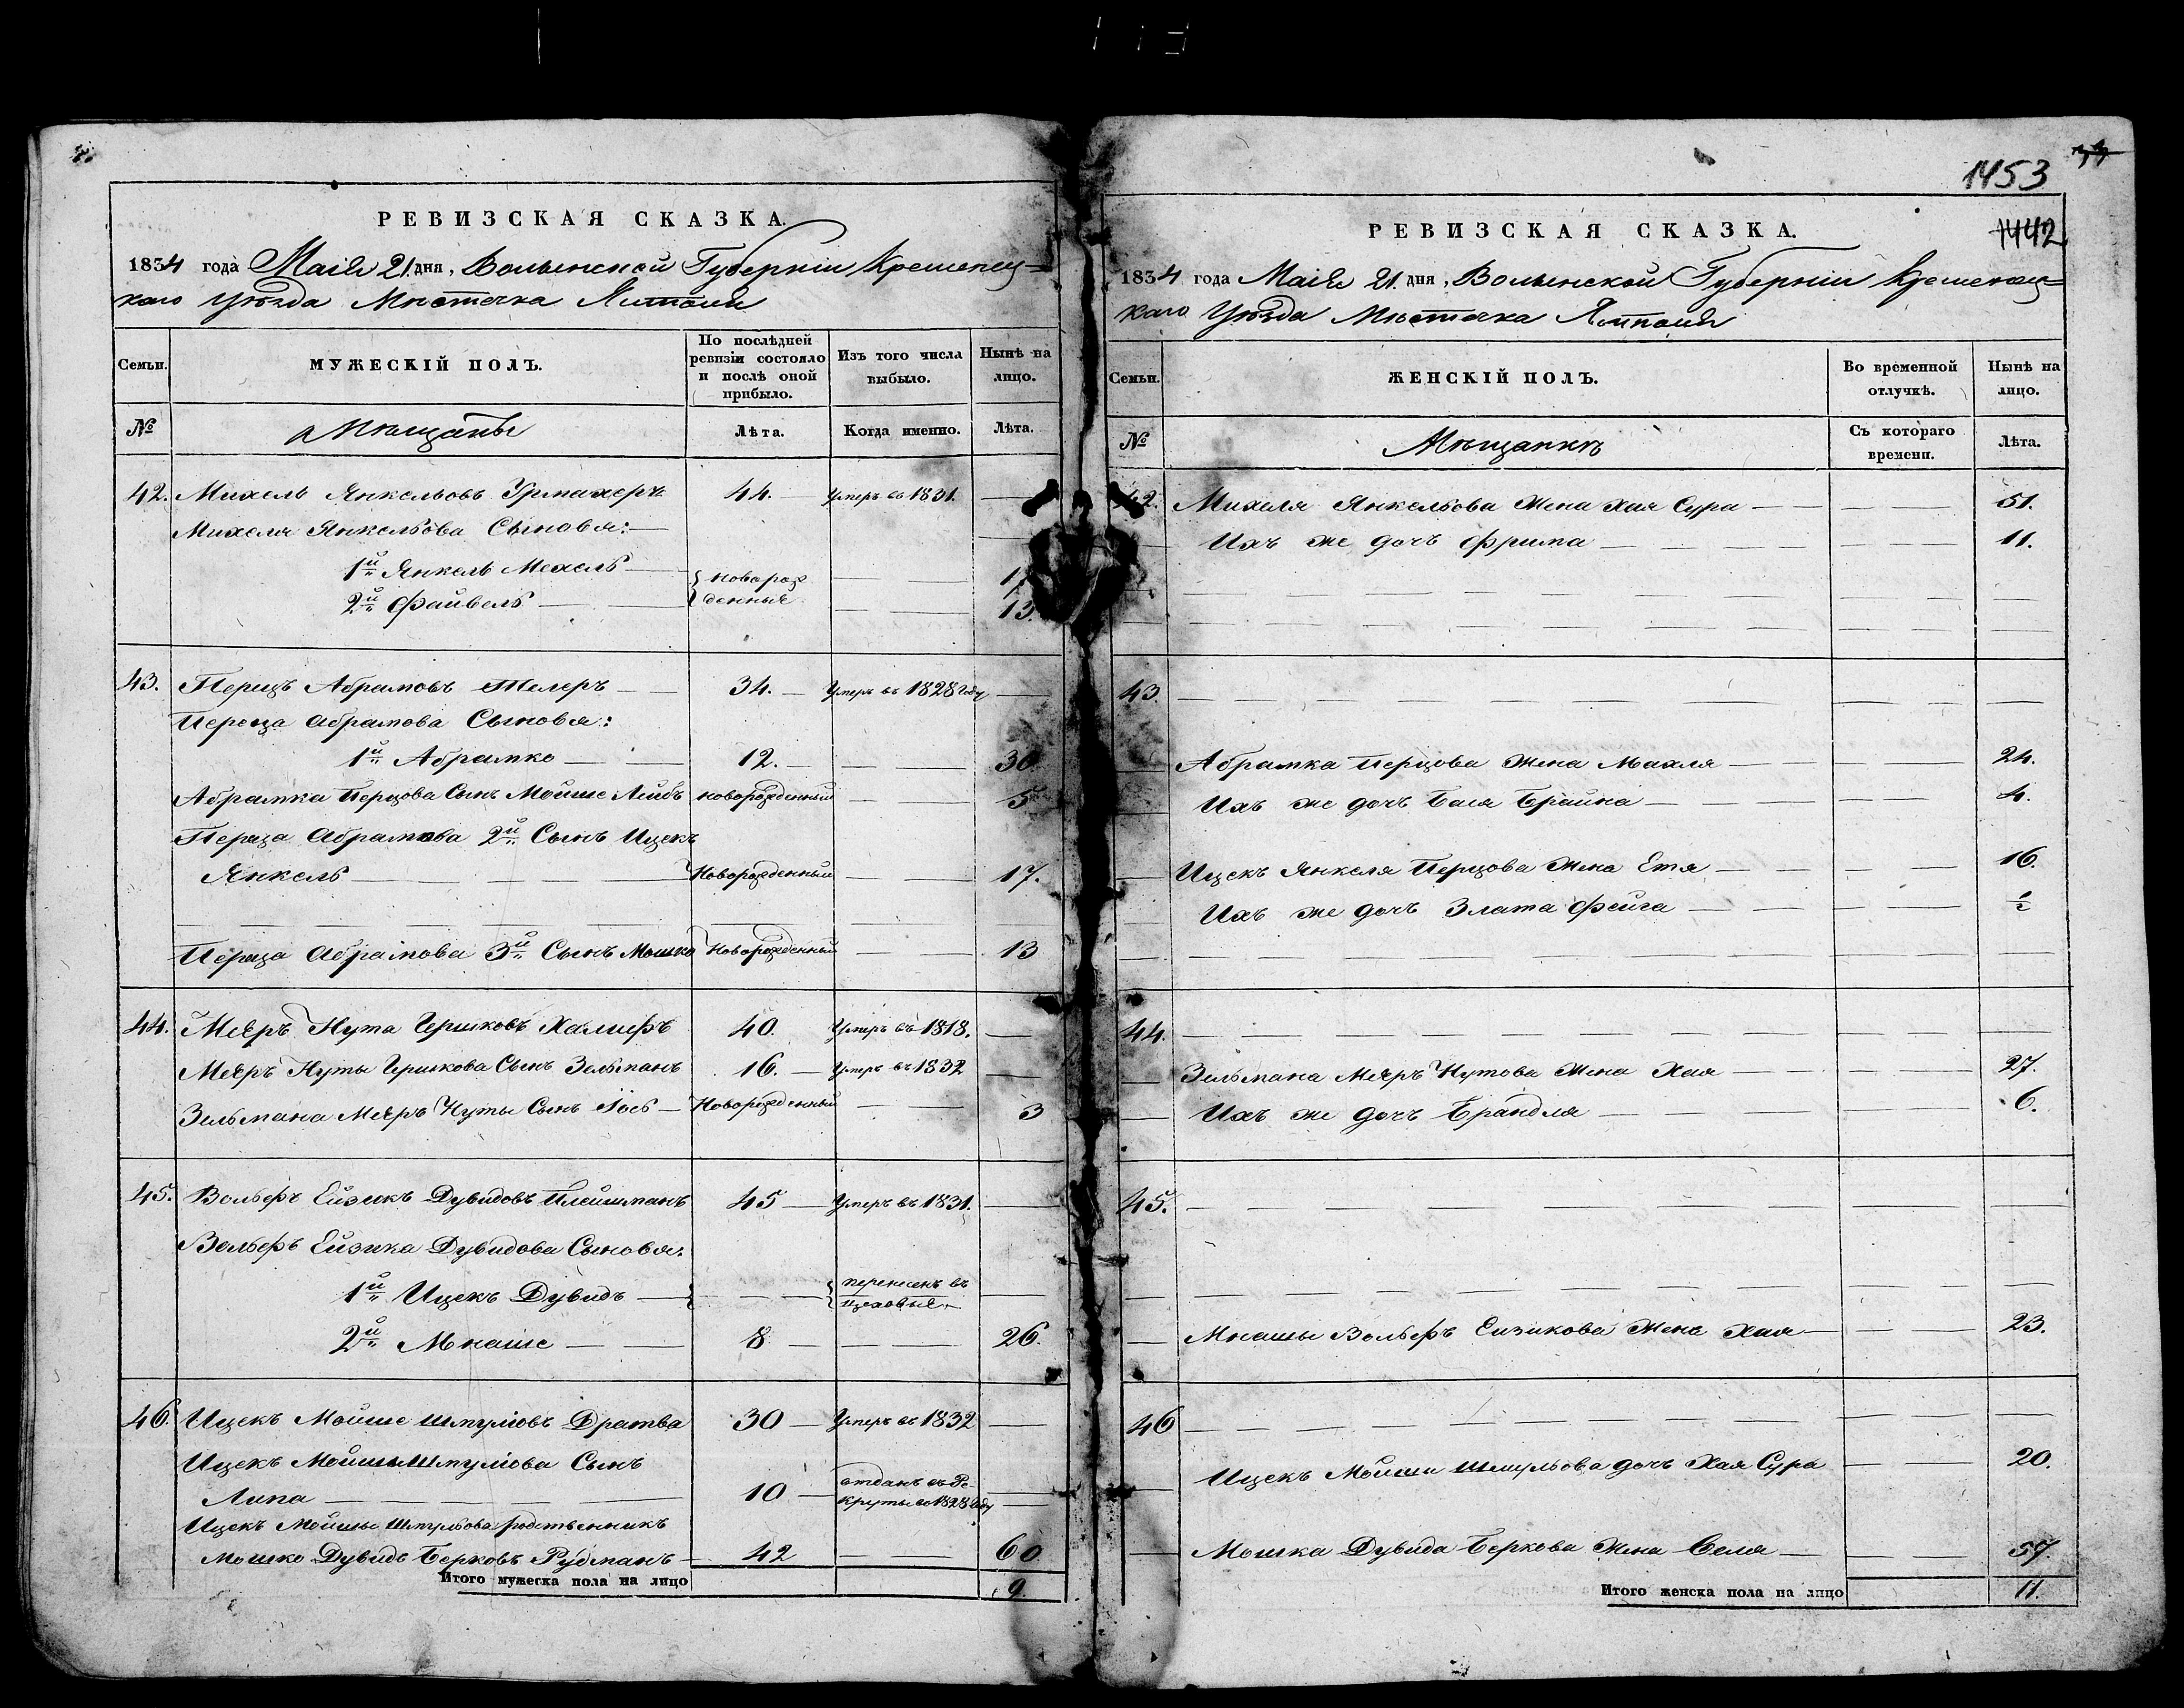 РЕВИЗСКАЯ СКАЗКА.
1834 года Маія 21 дня, Волынской Губерніи Кременец=
каго уѣзда Мѣстечка Ямполя
Семьи.
МУЖЕСКІЙ ПОЛЪ.
По послѣдней
ревизіи состояло
и послѣ оной
прибыло.
Изъ того числа
выбыло.
Нынѣ на
лицо.
№
Мѣщаны
Лѣта.
Когда именно.
Лѣта.
42. Михель Янкельовъ 44. Умеръ въ 1831. —
Михеля Янкельова Сыновья:—
1й Янкель Мехель —
2й Файвель — — 13.
{ новорож
денные
43. Перецъ Абрамовъ — 34. — Умеръ въ 1828 году —
Переца Абрамова Сыновья:
1й Абрамко — — 12. — — 30
Абрамка Перцова Сынъ Мойше Лейбъ новорожденный — 5
Переца Абрамова 2й Сынъ Ицекъ
Янкель — — Новорожденный — — 17.
Переца Абрамова 3й Сынъ Мошко Новорожденный — — 13
44. Мееръ Нута Гершковъ Халифъ 40. Умеръ въ 1818. —
Мееръ Нуты Гершкова Сынъ Зельманъ 16. — Умеръ въ 1832 —
Зельмана Мееръ Нуты Сынъ Іось — Новорожденный — — 3
45. Вольфъ Ейзикъ Дувидовъ Плейшманъ 45 — Умеръ въ 1831. —
Вольфъ Ейзика Дувидова Сыновья:
1й Ицекъ Дувидъ — } — — { перенесенъ въ
цеховые. —
2й Мнаше — — 8 — — 26.
46. Ицекъ Мойше Шмулiовъ Дратва 30 — Умеръ въ 1832 —
Ицекъ Мойшы Шмулiова Сынъ
Липа — — — 10 — отданъ въ Ре-
круты въ 1828 году —
Ицекъ Мойшы Шмульова родственникъ
Мошко Дувидъ Берковъ Рудманъ — 42 — — 60
Итого мужеска пола на лицо 9.
1453
1442
РЕВИЗСКАЯ СКАЗКА.
1834 года Маія 21 дня, Волынской Губерніи Кременец=
каго Уѣзда Мѣстечка Ямполя
Семьи.
ЖЕНСКІЙ ПОЛЪ.
Во временной
отлучкѣ.
Нынѣ на
лицо.
№
Мѣщанки
Съ котораго
времени.
Лѣта.
42. Михеля Янкельова Жена Хая Сура — — 51.
Ихъ же дочь Фрима — — 11.
43.
Абрамка Перцова Жена Махля — — 24.
Ихъ же дочь Бася Брайна — — 4.
Ицекъ Янкеля Перцова Жена Етя — — 16.
Ихъ же дочь Злата Фейга — —
44.
Зельмана Мееръ Нутова Жена Хая — — 27.
Ихъ же дочь Брандля — — 6.
45.
Мнашы Вольфъ Еизикова Жена Хая — — 23.
46
Ицекъ Мойшы Шмульова дочь Хая Сура — — 20.
Мошка Дувида Беркова Жена Беля — — 57.
Итого женска пола на лицо 11.